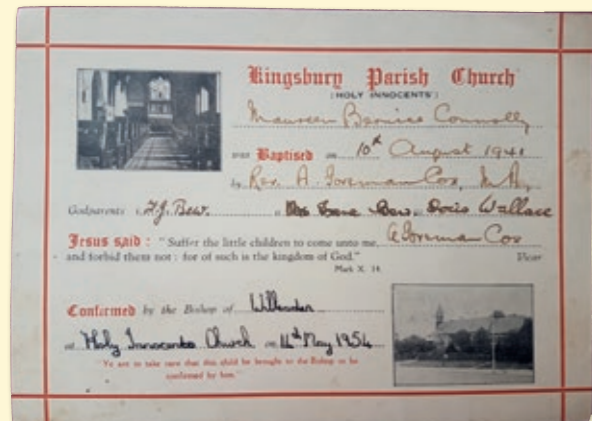 Kingsbury Parish Church
(HOLY INNOCENTS')
Maureen Bernice Connolly
was Baptised on 10th August 1941
by Rev. A. Foreman Cox, M.A.
Godparents F.J. Bew. Bew Doris Wallace
Jesus said : " Suffer the little children to come unto me, A Foreman Cox
and forbid them not : for of such is the kingdom of God." Vicar
Mark X. 14.
Confirmed by the Bishop of Willesden
at Holy Innocents Church on 14th May 1954
"Ye are to take care that this child be brought to the Bishop to be
confirmed by him."